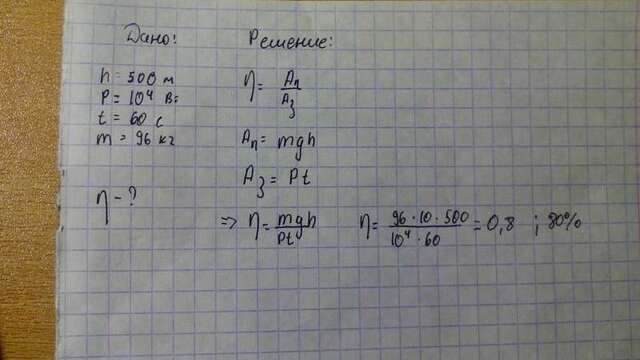 Дано:
h = 500 м
P = 10⁴ Вт
t = 60 с
m = 96 кг
η - ?
Решение:
η = Aп/Aз
Aп = mgh
Aз = Pt
=> η = mgh/Pt η = 96·10·500/10⁴·60 = 0,8 ; 80%